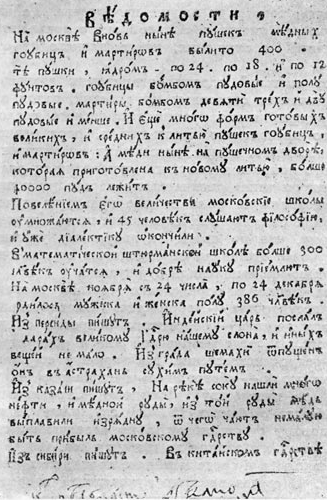 Вѣдомости
На москвѣ вновь нынѣ пушекъ мѣдныхъ
гоубицъ и мартировъ вылито 400.
тѣ пушки, ядромъ, по 24. по 18. и по 12
фунтовъ. гоубицы бомбомъ пудовые и полу
пудовые. мартиры бомбомъ девяти трехъ и двухъ
пудовые и менше. И еще много формъ готовыхъ
великихъ, и среднихъ к литью пушекъ гоубицъ
и мартировъ: А мѣди нынѣ на пушечномъ дворѣ,
которая приготовлена к новому литью, болше
40000 пудъ лежитъ.
Повелѣнїемъ его величества московские школы
оумножаются, и 45 человѣкъ слушаютъ філософїю,
и уже дїалектїку окончили.
В математической штюрманской школѣ болше 300
члвѣкъ оучатся, и добрѣ науку прїемлютъ.
На москвѣ ноября съ 24 числа, по 24 декабря
родилось мужска и женска полу 386 члвѣкъ.
Из персиды пишутъ. Индѣйскїй царь послалъ
в дарахъ великому Гдрю нашему слона, и иныхъ
вещей не мало. Из града шемахи ѿпущенъ
онъ в астрахань сухимъ путемъ.
Из казани пишутъ. На рѣкѣ соку нашли много
нефти, и мѣдной руды, из той руды мѣдь
выплавили изрядну, ѿ чего чаютъ немалую
быть прибыль московскому гдрству.
Из сибири пишутъ. В китайскомъ гдрствѣ